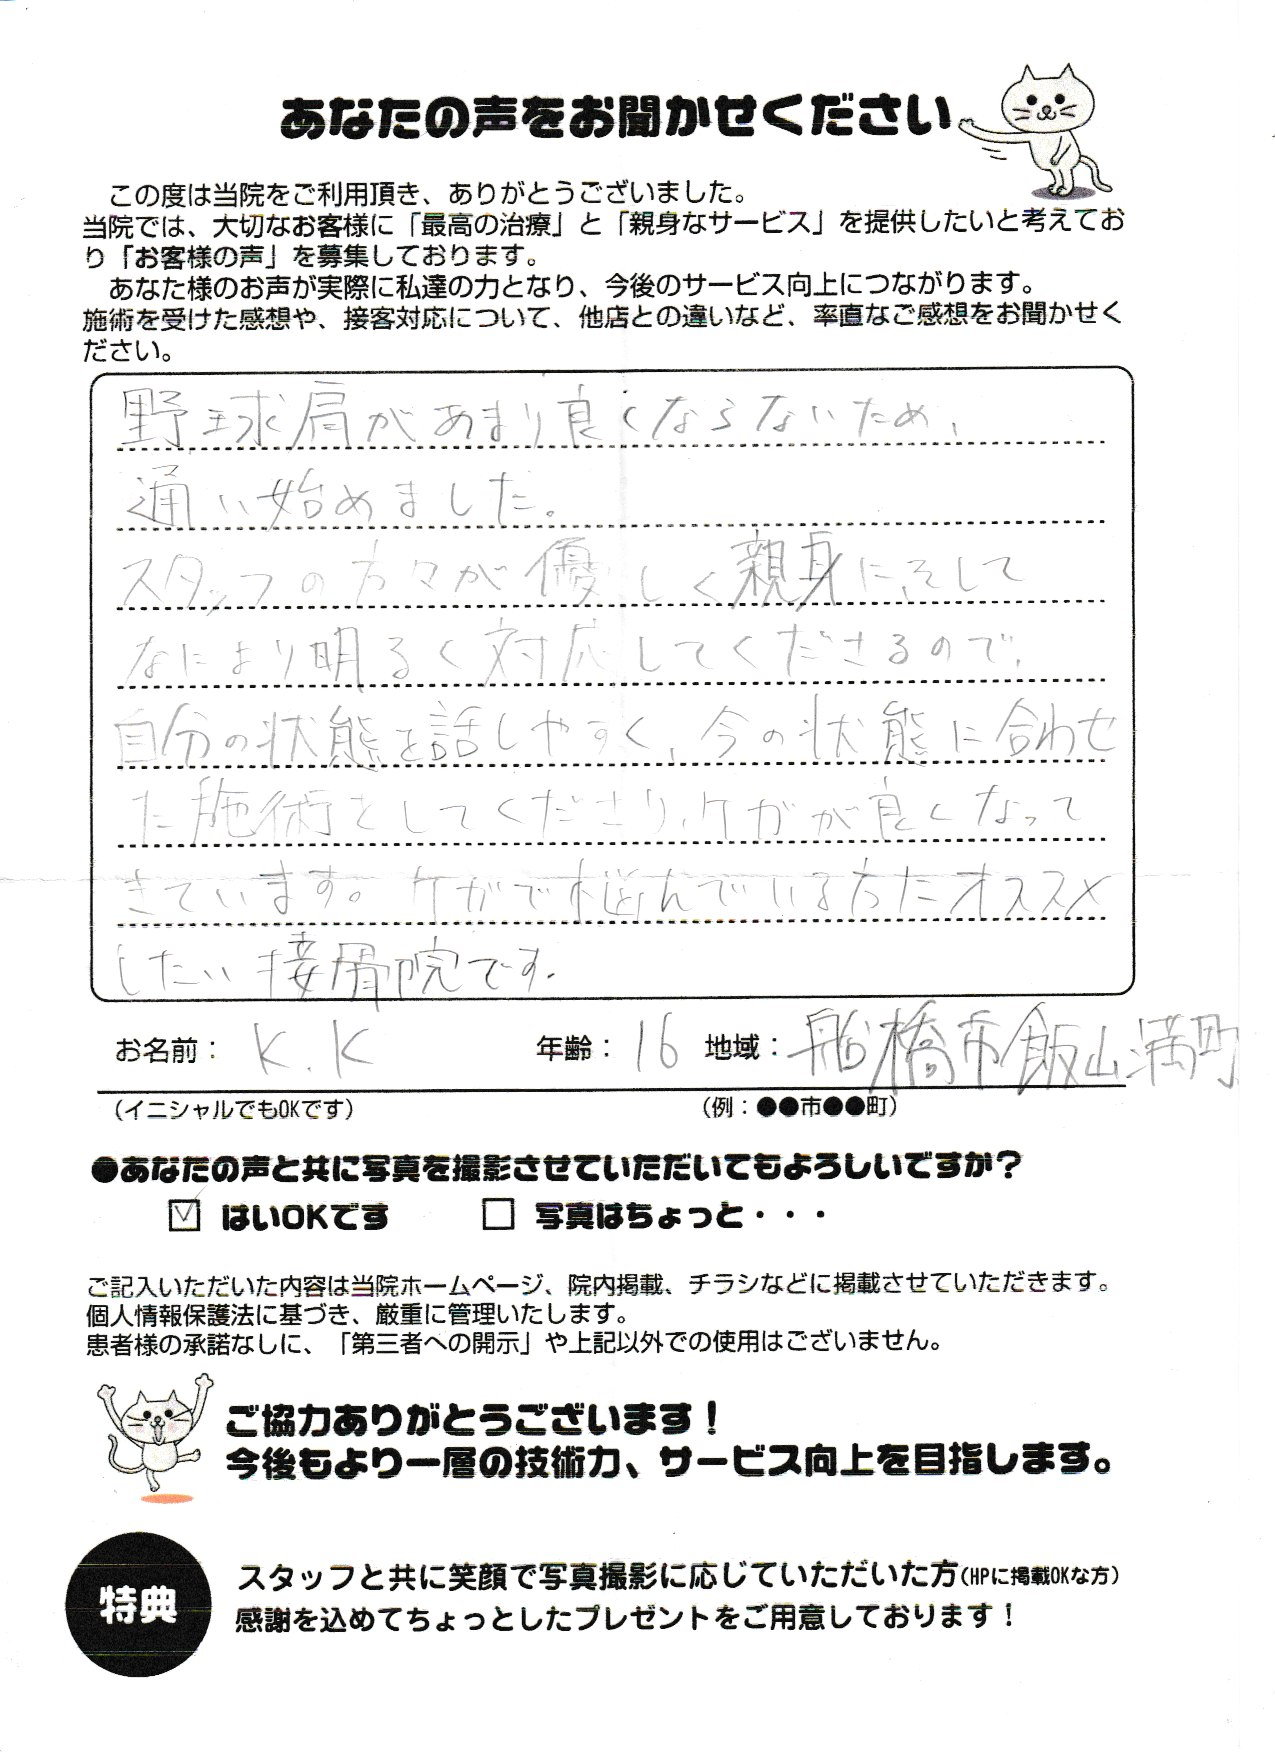 あなたの声をお聞かせください
この度は当院をご利用頂き、ありがとうございました。
当院では、大切なお客様に「最高の治療」と「親身なサービス」を提供したいと考えてお
り「お客様の声」を募集しております。
あなた様のお声が実際に私達の力となり、今後のサービス向上につながります。
施術を受けた感想や、接客対応について、他店との違いなど、率直なご感想をお聞かせく
ださい。
野球肩があまり良くならないため、
通い始めました。
スタッフの方々が優しく親身に、そして
なにより明るく対応してくださるので、
自分の状態を話しやすく、今の状態に合わせ
た施術をしてくださり、ケガが良くなって
きています。ケガで悩んでいる方にオススメ
したい接骨院です。
お名前： K.K 年齢： 16 地域： 船橋市飯山満町
（イニシャルでもOKです） （例：●●市●●町）
●あなたの声と共に写真を撮影させていただいてもよろしいですか？
☑ はいOKです □ 写真はちょっと・・・
ご記入いただいた内容は当院ホームページ、院内掲載、チラシなどに掲載させていただきます。
個人情報保護法に基づき、厳重に管理いたします。
患者様の承諾なしに、「第三者への開示」や上記以外での使用はございません。
ご協力ありがとうございます！
今後もより一層の技術力、サービス向上を目指します。
特典
スタッフと共に笑顔で写真撮影に応じていただいた方（HPに掲載OKな方）
感謝を込めてちょっとしたプレゼントをご用意しております！